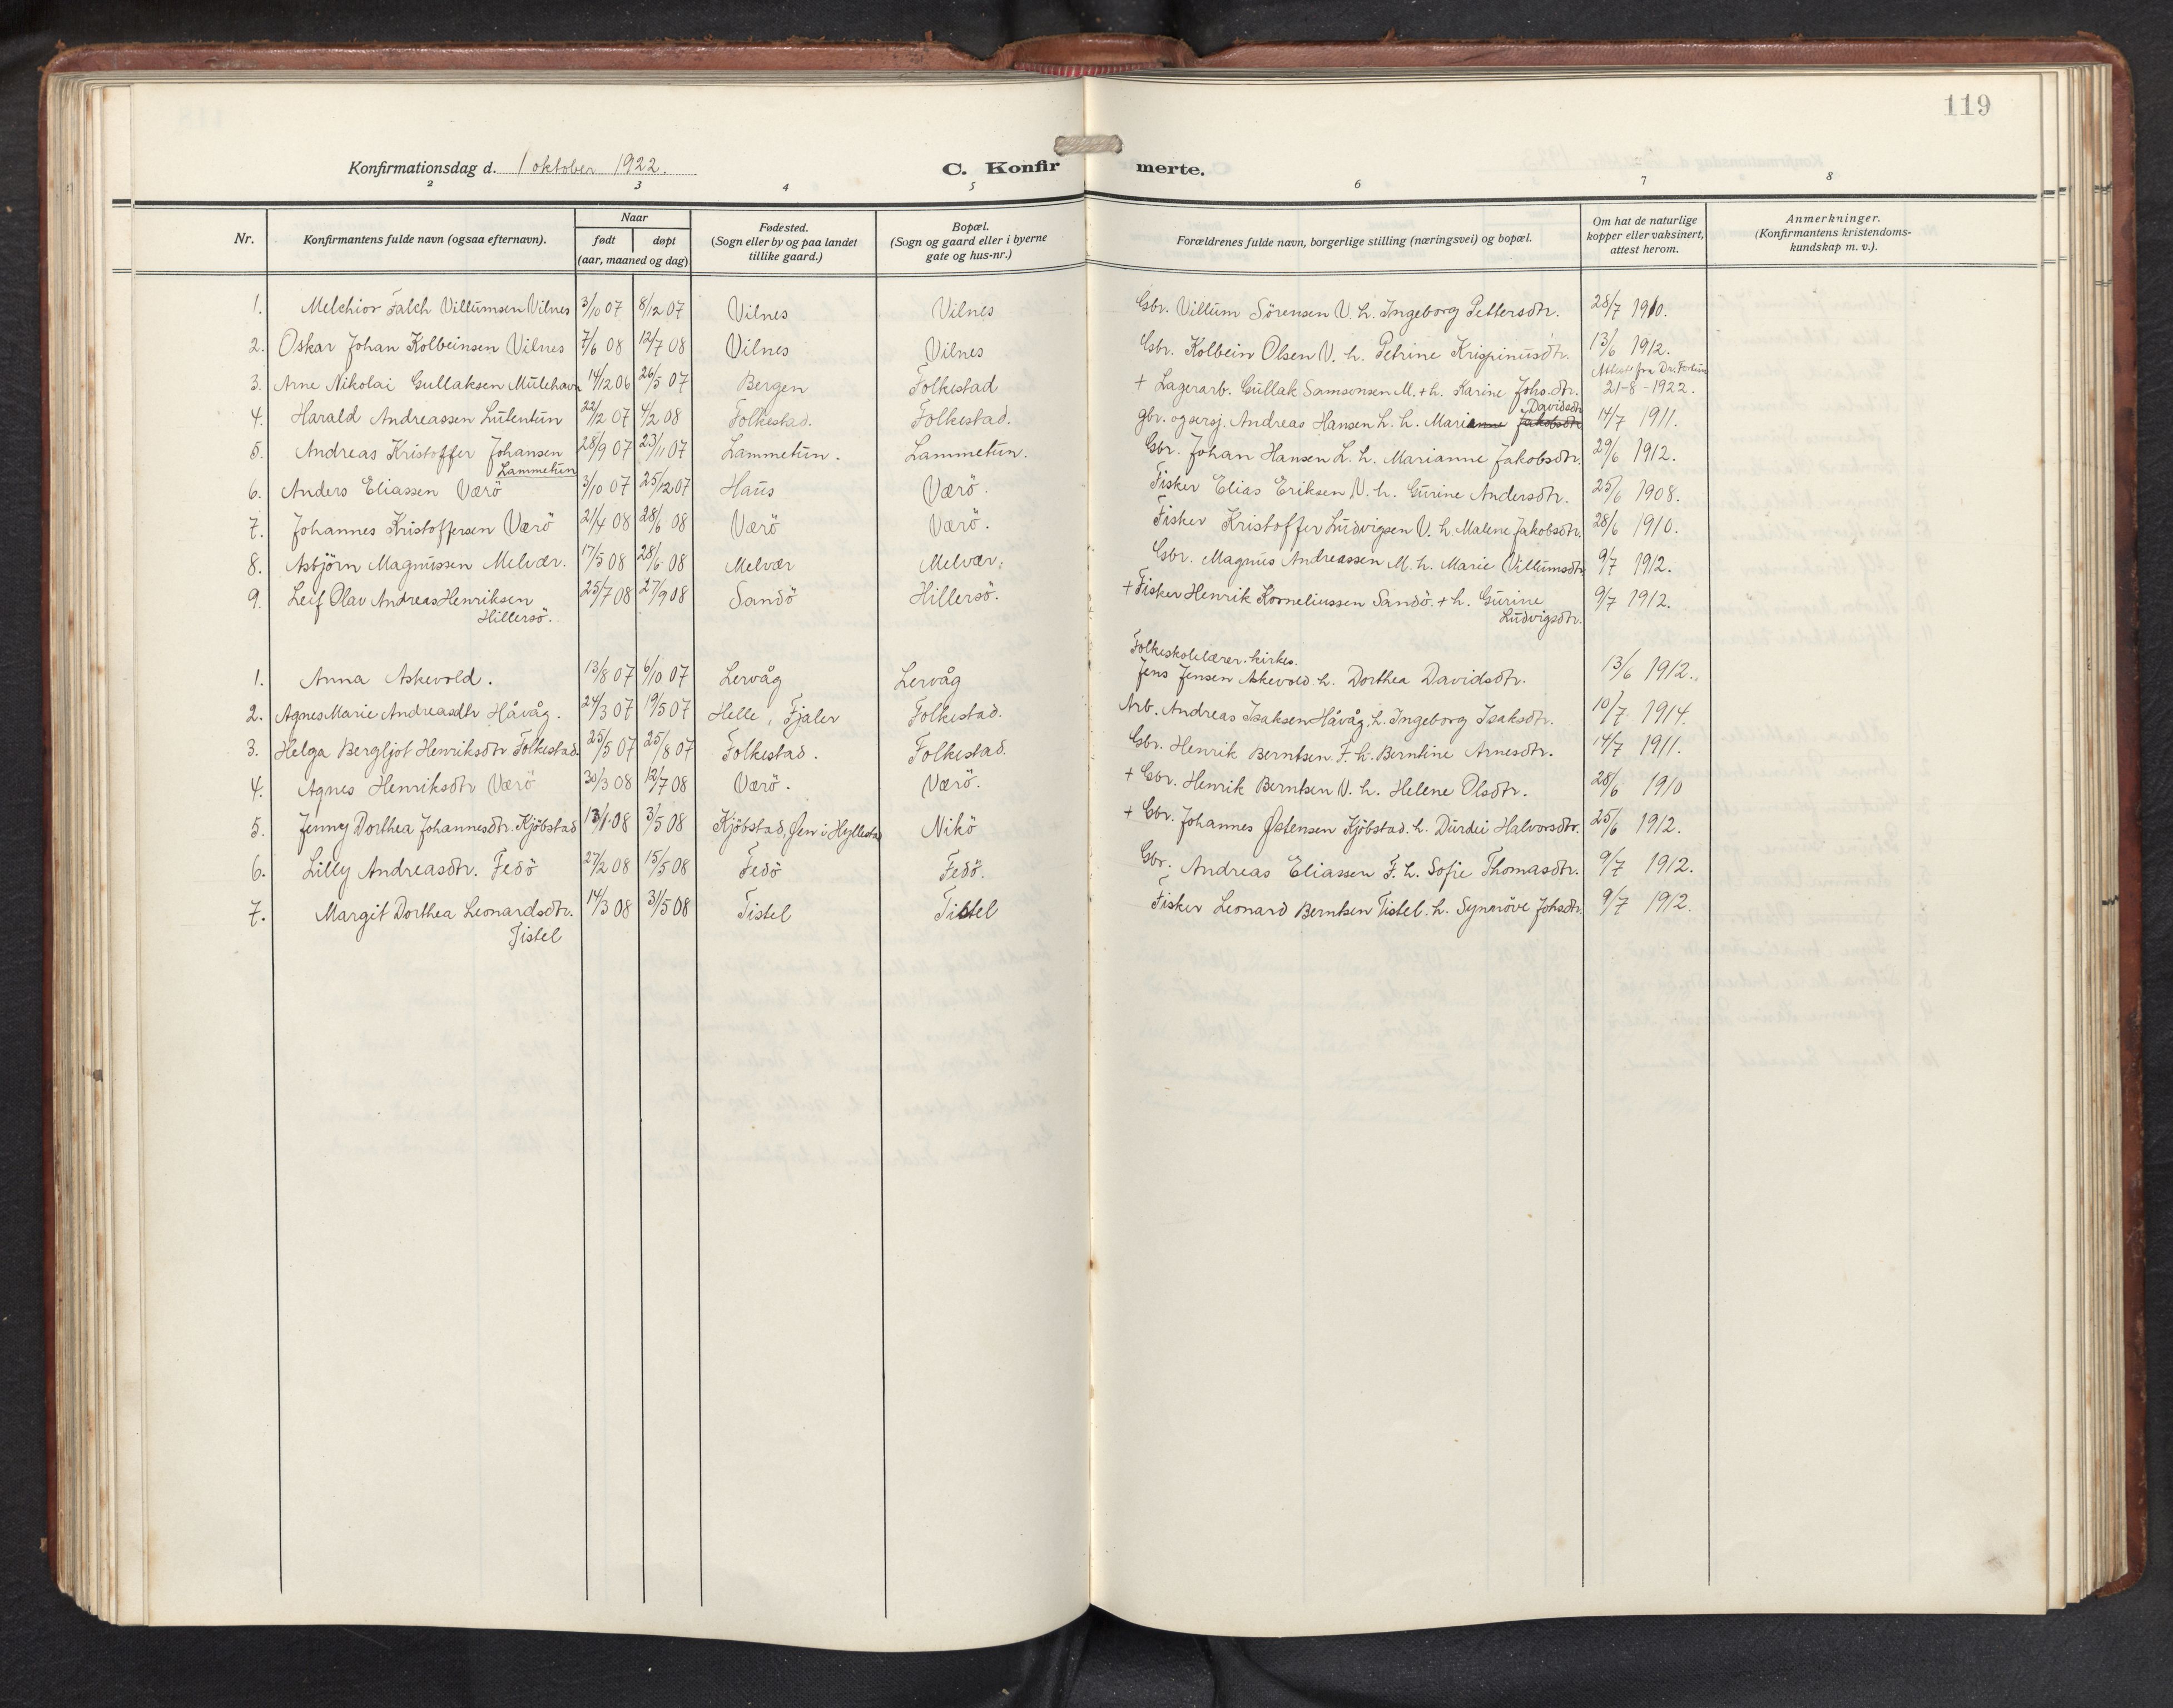 119
Konfirmationsdag d. 1 oktober 1922.
C. Konfirmerte.
2 3 4 5 6 7 8
Nr. Konfirmantens fulde navn (ogsaa efternavn). Naar født døpt (aar, maaned og dag) Fødested. (Sogn eller by og paa landet tillike gaard.) Bopæl. (Sogn og gaard eller i byerne gate og hus-nr.) Forældrenes fulde navn, borgerlige stilling (næringsvei) og bopæl. Om hat de naturlige kopper eller vaksinert, attest herom. Anmerkninger. (Konfirmantens kristendomskundskap m. v.).
1. Melchior Falch Villumsen Vilnes 3/10 07 8/12 07 Vilnes Vilnes Gbr. Villum Sörensen V. h. Ingeborg Pettersdtr. 28/7 1910.
2. Oskar Johan Kolbeinsen Vilnes 7/6 08 12/7 08 Vilnes Vilnes Gbr. Kolbein Olsen V. h. Petrine Krispinusdtr. 13/6 1912.
Attest fra Dr.
3. Arne Nikolai Gullaksen Mulehavn 14/12 06 26/5 07 Bergen Folkestad + Lagerarb. Gullak Samsonsen M. + h. Karine Johs.dtr. 21-8-1922.
Davidsdtr
4. Harald Andreassen Lutentun 22/12 07 4/2 08 Folkestad. Folkestad. gbr. og sersj. Andreas Hansen L. h. Marianne Jakobsdtr 14/7 1911.
5. Andreas Kristoffer Johansen 28/9 07 23/11 07 Lammetun. Lammetun. Gbr. Johan Hansen L. h. Marianne Jakobsdtr. 29/6 1912.
Lammetun
6. Anders Eliassen Værö 3/10 07 25/12 07 Haus Værö. Fisker Elias Eriksen V. h. Gurine Andersdtr. 25/6 1908.
7. Johannes Kristoffersen Værö 21/4 08 28/6 08 Værö Værö. Fisker Kristoffer Ludvigsen V. h. Malene Jakobsdtr. 28/6 1910.
8. Asbjörn Magnussen Melvær. 17/5 08 28/6 08 Melvær Melvær. Gbr. Magnus Andreassen M. h. Marie Villumsdtr 9/7 1912.
9. Leif Olav Andreas Henriksen 25/7 08 27/9 08 Sandö Hillersö. + Fisker Henrik Korneliussen Sandö. + h. Gurine 9/7 1912.
Hillersö. Ludvigsdtr.
Folkeskolelærer. kirkes.
1. Anna Askevold. 13/8 07 6/10 07 Lervåg Lervåg Jens Jensen Askevold. h. Dorthea Davidsdtr. 13/6 1912.
2. Agnes Marie Andreasdtr Håvåg. 24/3 07 19/5 07 Helle, Fjaler Folkestad. Arb. Andreas Isaksen Håvåg. h. Ingeborg Isaksdtr. 10/7 1914.
3. Helga Bergljot Henriksdtr Folkestad 25/5 07 25/8 07 Folkestad. Folkestad. Gbr. Henrik Berntsen. F. h. Berntine Arnesdtr. 14/7 1911.
4. Agnes Henriksdtr Værö 30/3 08 12/7 08 Værö. Værö. + Gbr. Henrik Berntsen V. h. Helene Olsdtr. 28/6 1910
5. Jenny Dorthea Johannesdtr. Kjöbstad 13/1 08 3/5 08 Kjöbstad, Øen i Hyllestad Nikö + Gbr. Johannes Østensen Kjöbstad. h. Durdei Halvorsdtr. 25/6 1912.
6. Lilly Andreasdtr. Fedö 27/2 08 15/5 08 Fedö Fedö. Gbr. Andreas Eliassen F. h. Sofie Thomasdtr. 9/7 1912.
7. Margit Dorthea Leonardsdtr. 14/3 08 31/5 08 Tistel Tistel Fisker Leonard Berntsen Tistel. h. Synneöve Johsdtr. 9/7 1912.
Tistel